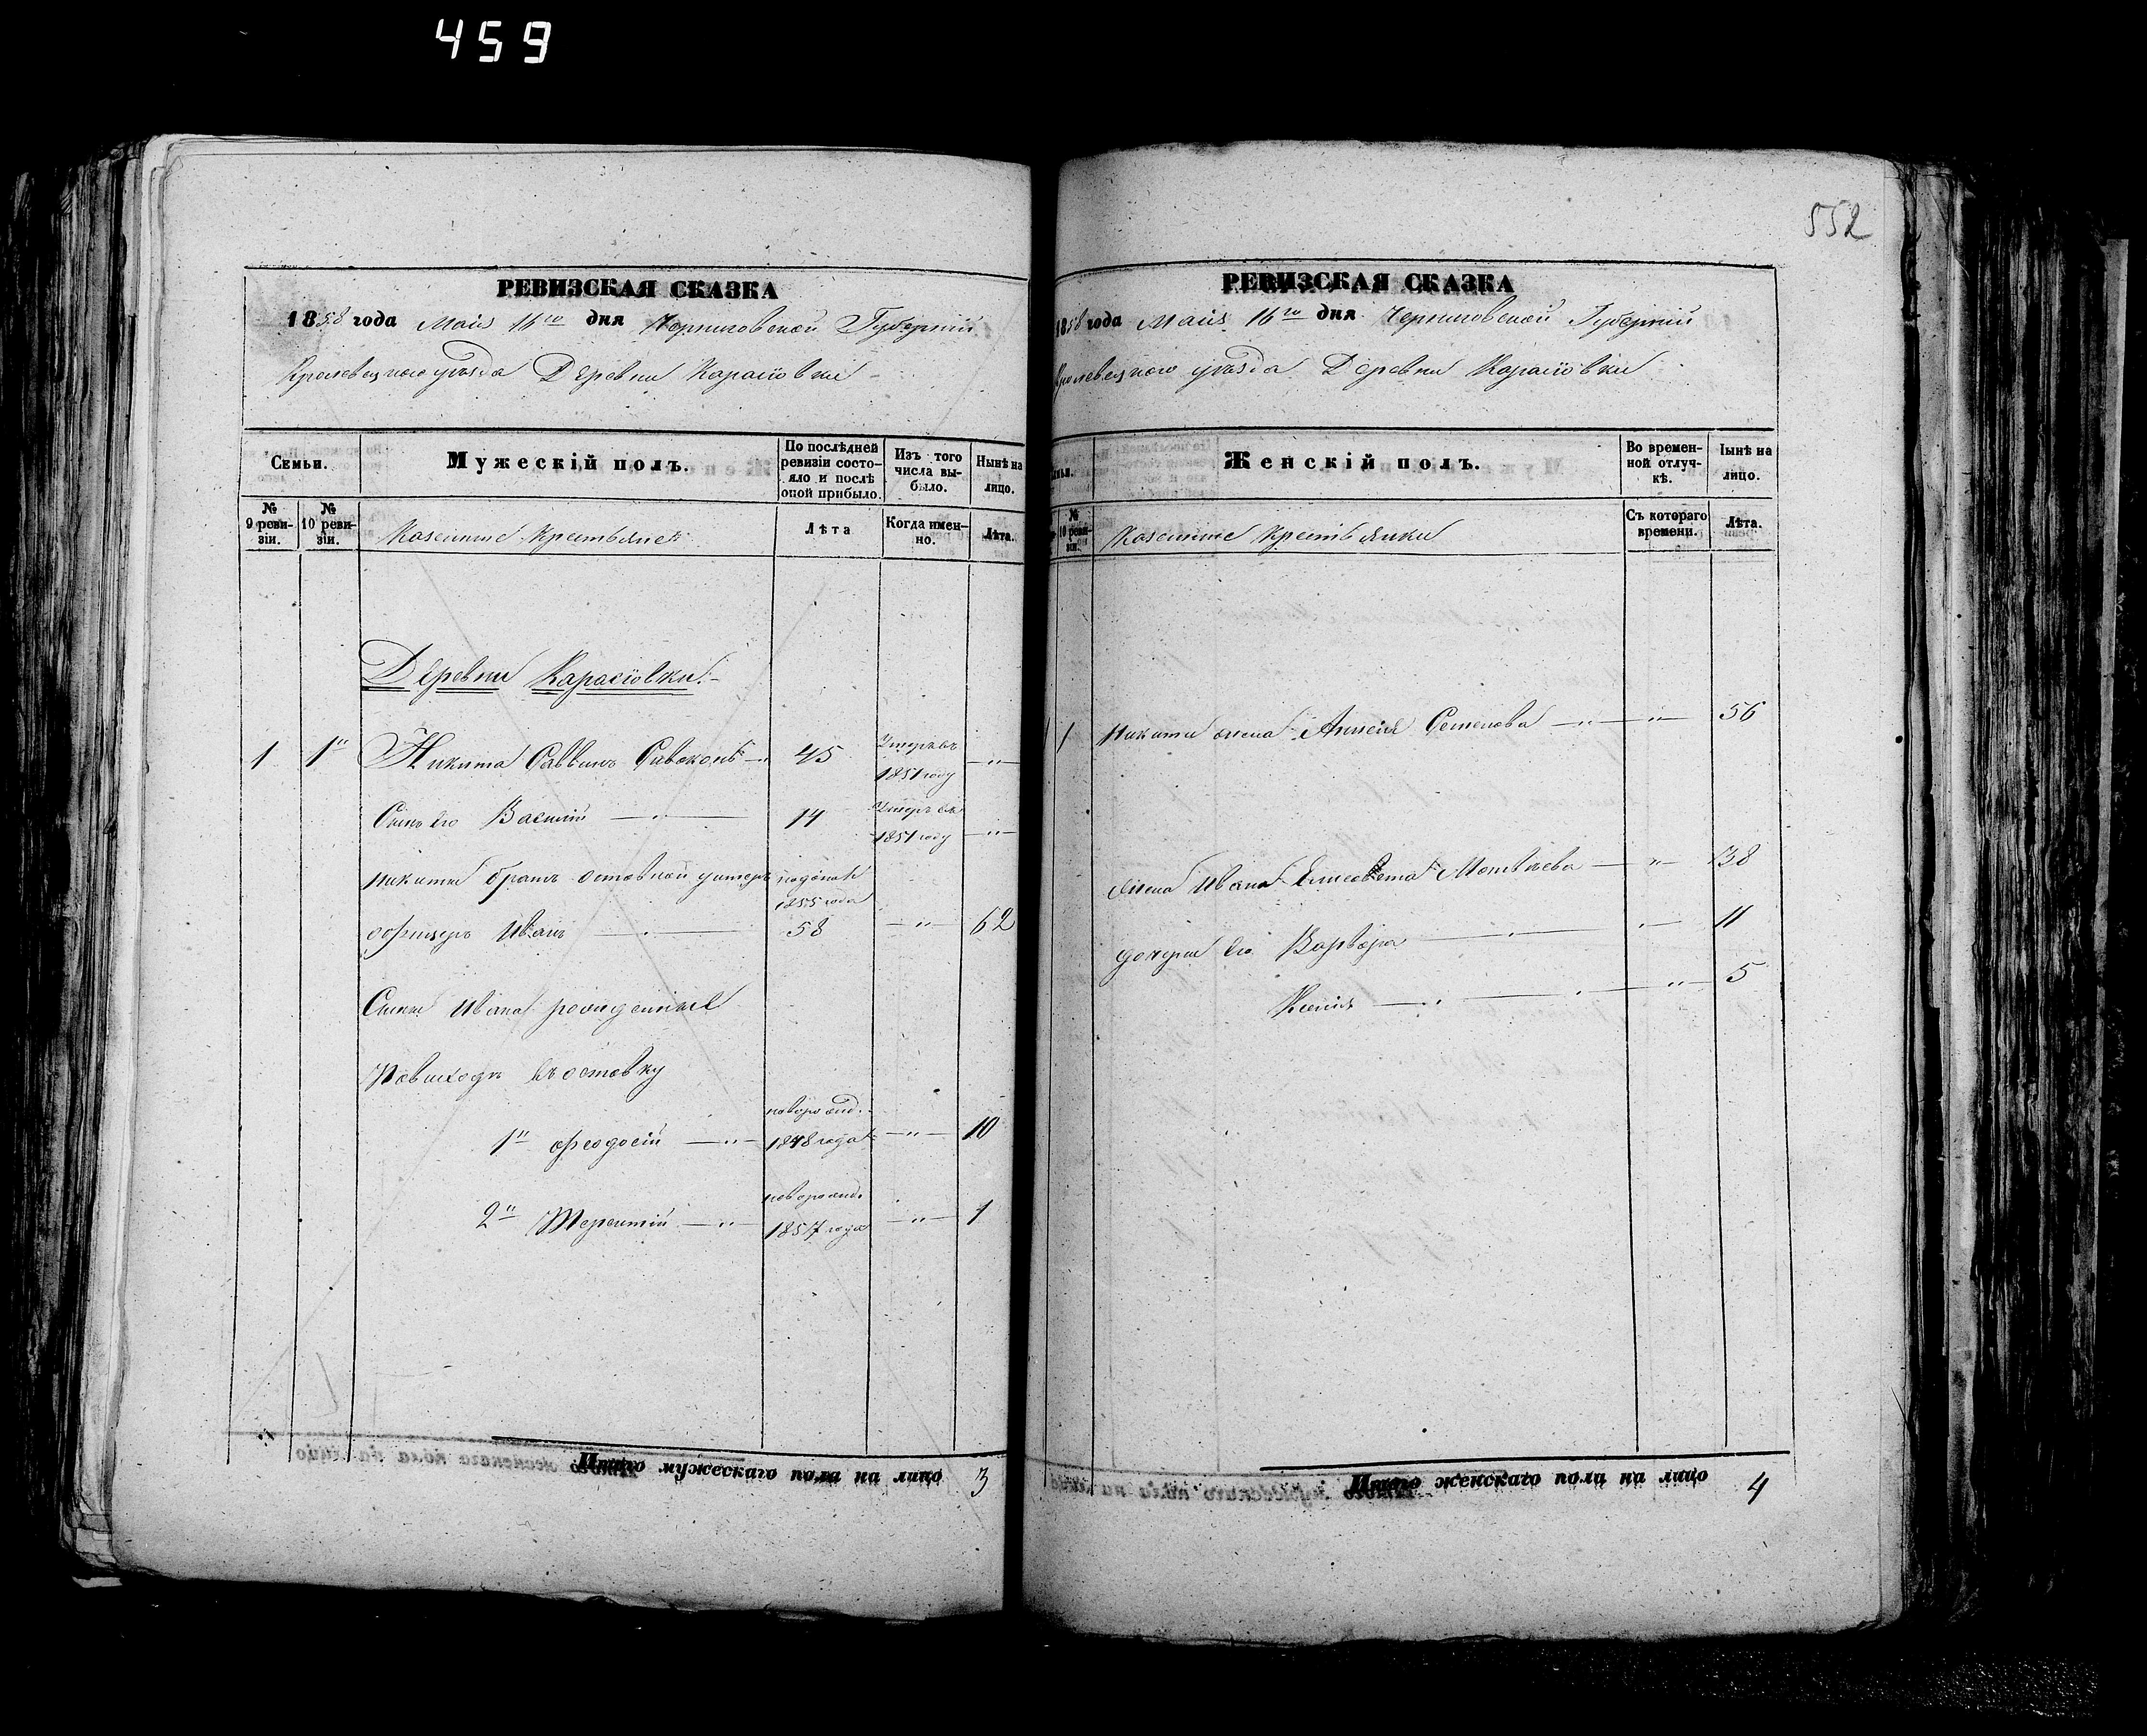 459
552
РЕВИЗСКАЯ СКАЗКА
1858 года Маія 16го дня Черниговской Губерніи
Кролевецкого уѣзда Деревни Карасіовки
Семьи.
Мужескій полъ.
По послѣдней ревизіи состояло и послѣ оной прибыло.
Изъ того числа выбыло.
Нынѣ на лицо.
№ 9 ревизіи.
№ 10 ревизіи.
Казенные Крестьяне
Лѣта
Когда именно.
Лѣта.
Деревни Карасіовки.
1 1 Никита Саввинъ 45 Умеръ въ 1851 году
Сынъ его Василій 14 Умеръ въ 1851 году
Никиты братъ отставной унтеръ
1855 года
офицеръ Иванъ 58 62
Сыны Ивана рожденные
По выходѣ въ отставку
новорожд.
1 Феодосій 1848 года 10
новорожд.
2 Терентій 1857 года 1
Итого мужескаго пола на лицо 3
РЕВИЗСКАЯ СКАЗКА
1858 года Маія 16го дня Черниговской Губерніи
Кролевецкого уѣзда Деревни Карасіовки
Женскій полъ.
Во временной отлучкѣ.
Нынѣ на лицо.
№ 10 ревизіи.
Казенные Крестьянки
Съ котораго времени.
Лѣта.
1 Никиты жена Семенова 56
Жена Ивана Елисавета Матвѣева 38
дочери его Варвара 11
Ксенія 5
Итого женскаго пола на лицо 4